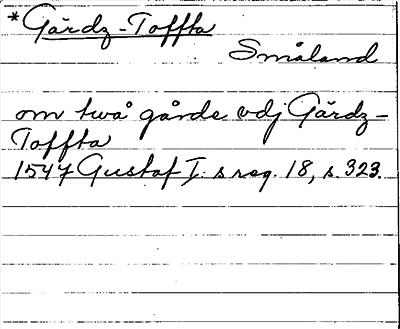 *Gärdz-Toffta
Småland
om twå gårde vdj Gärdz-
Toffta
1547 Gustaf I:s reg. 18, s. 323.